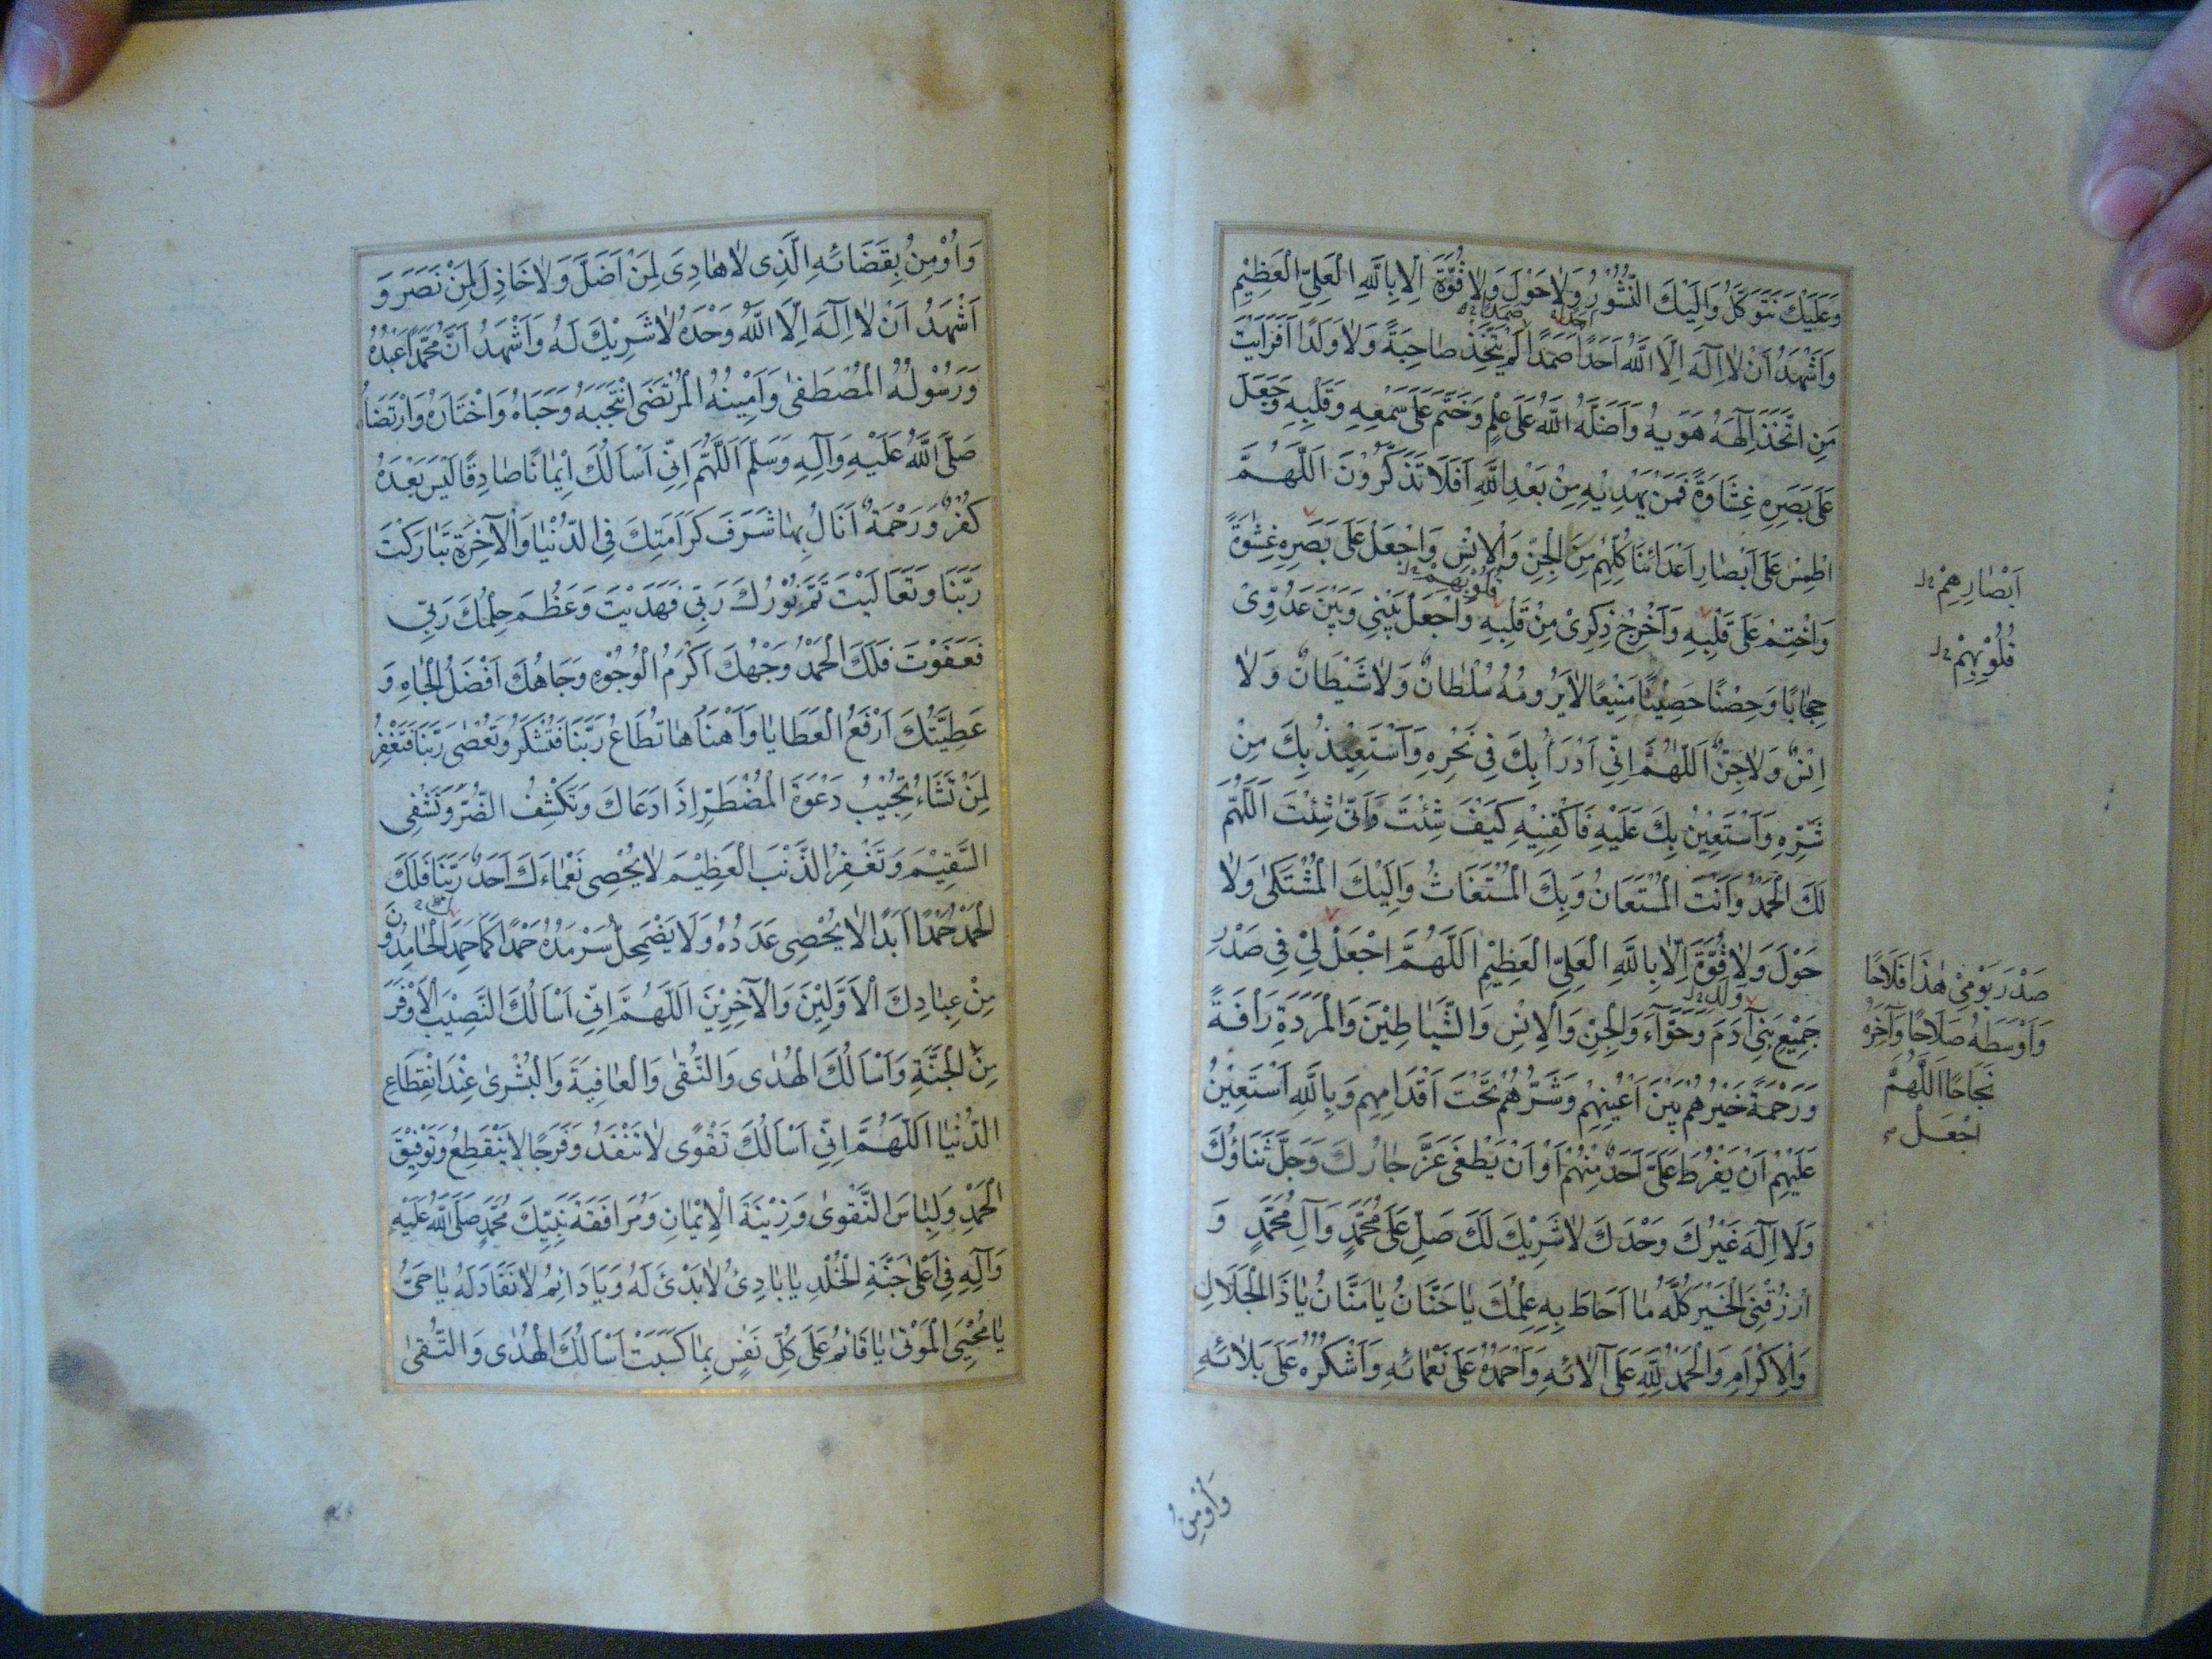 وَعَلَيْكَ نَتَوَكَّلُ وَاِلَيْكَ النُّشُوْرُ وَلاٰحَوْلَ وَلاٰقُوَّةَ اِلاّٰ بِاللّٰهِ الْعَلِيِّ الْعَظِيْمِ
وَاَشْهَدُ اَنْ لاٰ اِلٰهَ اِلَّا اللّٰهُ اَحَدًا صَمَدًا لَمْ يَتَّخِذْ صٰاحِبَةً وَلاٰ وَلَدًا اَفَرَاَيْتَ
مَنِ اتَّخَذَ اِلٰهَهُ هَوٰيهُ وَاَضَلَّهُ اللّٰهُ عَلٰى عِلْمٍ وَخَتَمَ عَلٰى سَمْعِهِ وَقَلْبِهِ وَجَعَلَ
عَلٰى بَصَرِهِ غِشَاوَةً فَمَنْ يَهْدِيْهِ مِنْ بَعْدِ اللّٰهِ اَفَلَا تَذَكَّرُوْنَ اَللّٰهُمَّ
اطْمِسْ عَلٰى اَبْصٰارِ اَعْدَائِنَا كُلِّهِمْ مِنَ الْجِنِّ وَالْاِنْسِ وَاجْعَلْ عَلٰى بَصَرِهِ غِشْوَةً
اَبْصٰارِهِمْ
وَاخْتِمْ عَلٰى قَلْبِهِ وَاَخْرِجْ ذِكْرِىْ مِنْ قَلْبِهِ وَاجْعَلْ بَيْنِي وَبَيْنَ عَدُوِّىْ
قُلُوْبِهِمْ
قُلُوْبِهِمْ
حِجٰابًا وَحِصْنًا حَصِيْنًا مَنِيْعًا لاٰيَرُومُهُ سُلْطٰانٌ وَلاٰشَيْطَانٌ وَلاٰ
اِنْسٌ وَلاٰجِنٌّ اَللّٰهُمَّ اِنِّي اَدْرَاُ بِكَ فِي نَحْرِهِ وَاَسْتَعِيْذُ بِكَ مِنْ
شَرِّهِ وَاَسْتَعِيْنُ بِكَ عَلَيْهِ فَاكْفِنِيْهِ كَيْفَ شِئْتَ وَاَنّٰى شِئْتَ اَللّٰهُمَّ
لَكَ الْحَمْدُ وَاَنْتَ الْمُسْتَعَانُ وَبِكَ الْمُسْتَغَاثُ وَاِلَيْكَ الْمُشْتَكٰى وَلاٰ
حَوْلَ وَلاٰقُوَّةَ اِلاّٰ بِاللّٰهِ الْعَلِيِّ الْعَظِيْمِ اَللّٰهُمَّ اجْعَلْ لِيْ فِي صَدْرِ
صَدْرَ يَوْمِيْ هٰذَا فَلَاحًا
وَاَوْسَطَهُ صَلَاحًا وَآخِرَهُ
نَجَاحًا اَللّٰهُمَّ
اجْعَلْ
جَمِيْعِ بَنِيْ آدَمَ وَحَوَّآءَ وَالْجِنِّ وَالْاِنْسِ وَالشَّيٰاطِيْنَ وَالْمَرَدَةِ رَاْفَةً
وَرَحْمَةً خَيْرُهُمْ بَيْنَ اَعْيُنِهِمْ وَشَرُّهُمْ تَحْتَ اَقْدَامِهِمْ وَبِاللّٰهِ اَسْتَعِيْنُ
عَلَيْهِمْ اَنْ يَفْرُطَ عَلَيَّ اَحَدٌ مِنْهُمْ اَوْ اَنْ يَطْغٰى عَزَّ جٰارُكَ وَجَلَّ ثَنَاؤُكَ
وَلَا اِلٰهَ غَيْرُكَ وَحْدَكَ لاٰشَرِيْكَ لَكَ صَلِّ عَلٰى مُحَمَّدٍ وَآلِ مُحَمَّدٍ وَ
ارْزُقْنِي الْخَيْرَ كُلَّهُ مٰا اَحَاطَ بِهِ عِلْمُكَ يٰا حَنَّانُ يٰا مَنَّانُ يٰا ذَا الْجَلَالِ
وَالْاِكْرَامِ وَالْحَمْدُ لِلّٰهِ عَلٰى آلاٰئِهِ وَاَحْمَدُهُ عَلٰى نَعْمٰائِهِ وَاَشْكُرُهُ عَلٰى بَلاٰئِهِ
وَاُوْمِنُ
وَاُوْمِنُ بِقَضَائِهِ الَّذِى لاٰ هٰادِىَ لِمَنْ اَضَلَّ وَلاٰخَاذِلَ لِمَنْ نَصَرَ وَ
اَشْهَدُ اَنْ لاٰ اِلٰهَ اِلَّا اللّٰهُ وَحْدَهُ لاٰشَرِيْكَ لَهُ وَاَشْهَدُ اَنَّ مُحَمَّدًا عَبْدُهُ
وَرَسُوْلُهُ الْمُصْطَفٰى وَاَمِيْنُهُ الْمُرْتَضٰى انْتَجَبَهُ وَحَبَاهُ وَاخْتَارَهُ وَارْتَضَاهُ
صَلَّى اللّٰهُ عَلَيْهِ وَآلِهِ وَسَلَّمَ اَللّٰهُمَّ اِنِّي اَسْاَلُكَ اِيْمٰانًا صٰادِقًا لَيْسَ بَعْدَهُ
كُفْرٌ وَرَحْمَةً اَنَالُ بِهٰا شَرَفَ كَرَامَتِكَ فِي الدُّنْيٰا وَالْآخِرَةِ تَبٰارَكْتَ
رَبَّنَا وَتَعَالَيْتَ تَمَّ نُوْرُكَ رَبِّي فَهَدَيْتَ وَعَظُمَ حِلْمُكَ رَبِّي
فَعَفَوْتَ فَلَكَ الْحَمْدُ وَجْهُكَ اَكْرَمُ الْوُجُوْهِ وَجَاهُكَ اَفْضَلُ الْجٰاهِ وَ
عَطِيَّتُكَ اَرْفَعُ الْعَطَايٰا وَاَهْنَاُهٰا تُطَاعُ رَبَّنَا فَتُشْكَرُ وَتُعْصٰى رَبَّنَا فَتَغْفِرُ
لِمَنْ تَشَاءُ تُجِيْبُ دَعْوَةَ الْمُضْطَرِّ اِذَا دَعَاكَ وَتَكْشِفُ الضُّرَّ وَتَشْفِى
السَّقِيْمَ وَتَغْفِرُ الذَّنْبَ الْعَظِيْمَ لاٰيُحْصِى نَعْمٰاءَكَ اَحَدٌ رَبَّنَا فَلَكَ
الْحَمْدُ حَمْدًا اَبَدًا لاٰيُحْصٰى عَدَدُهُ وَلَا يَضْمَحِلُّ سَرْمَدُهُ حَمْدًا كَمَا حَمِدَ الْحٰامِدُوْنَ
مِنْ عِبٰادِكَ الْاَوَّلِيْنَ وَالْآخِرِيْنَ اَللّٰهُمَّ اِنِّي اَسْاَلُكَ النَّصِيْبَ الْاَوْفَرَ
مِنَ الْجَنَّةِ وَاَسْاَلُكَ الْهُدٰى وَالتُّقٰى وَالْعٰافِيَةَ وَالْبُشْرىٰ عِنْدَ انْقِطَاعِ
الدُّنْيٰا اَللّٰهُمَّ اِنِّي اَسْاَلُكَ تَقْوًى لاٰتَنْفَدُ وَفَرَجًا لاٰيَنْقَطِعُ وَتَوْفِيْقَ
الْحَمْدِ وَلِبٰاسَ التَّقْوىٰ وَزِيْنَةَ الْاِيْمٰانِ وَمُرَافَقَةَ نَبِيِّكَ مُحَمَّدٍ صَلَّى اللّٰهُ عَلَيْهِ
وَآلِهِ فِي اَعْلٰى جَنَّةِ الْخُلْدِ يٰا بٰادِئُ لاٰبَدْئَ لَهُ وَيٰا دَائِمُ لاٰنَفَادَ لَهُ يٰا حَىُّ
يٰا مُحْيِىَ الْمَوْتٰى يٰا قَائِمُ عَلٰى كُلِّ نَفْسٍ بِمٰا كَسَبَتْ اَسْاَلُكَ الْهُدٰى وَالتُّقٰى